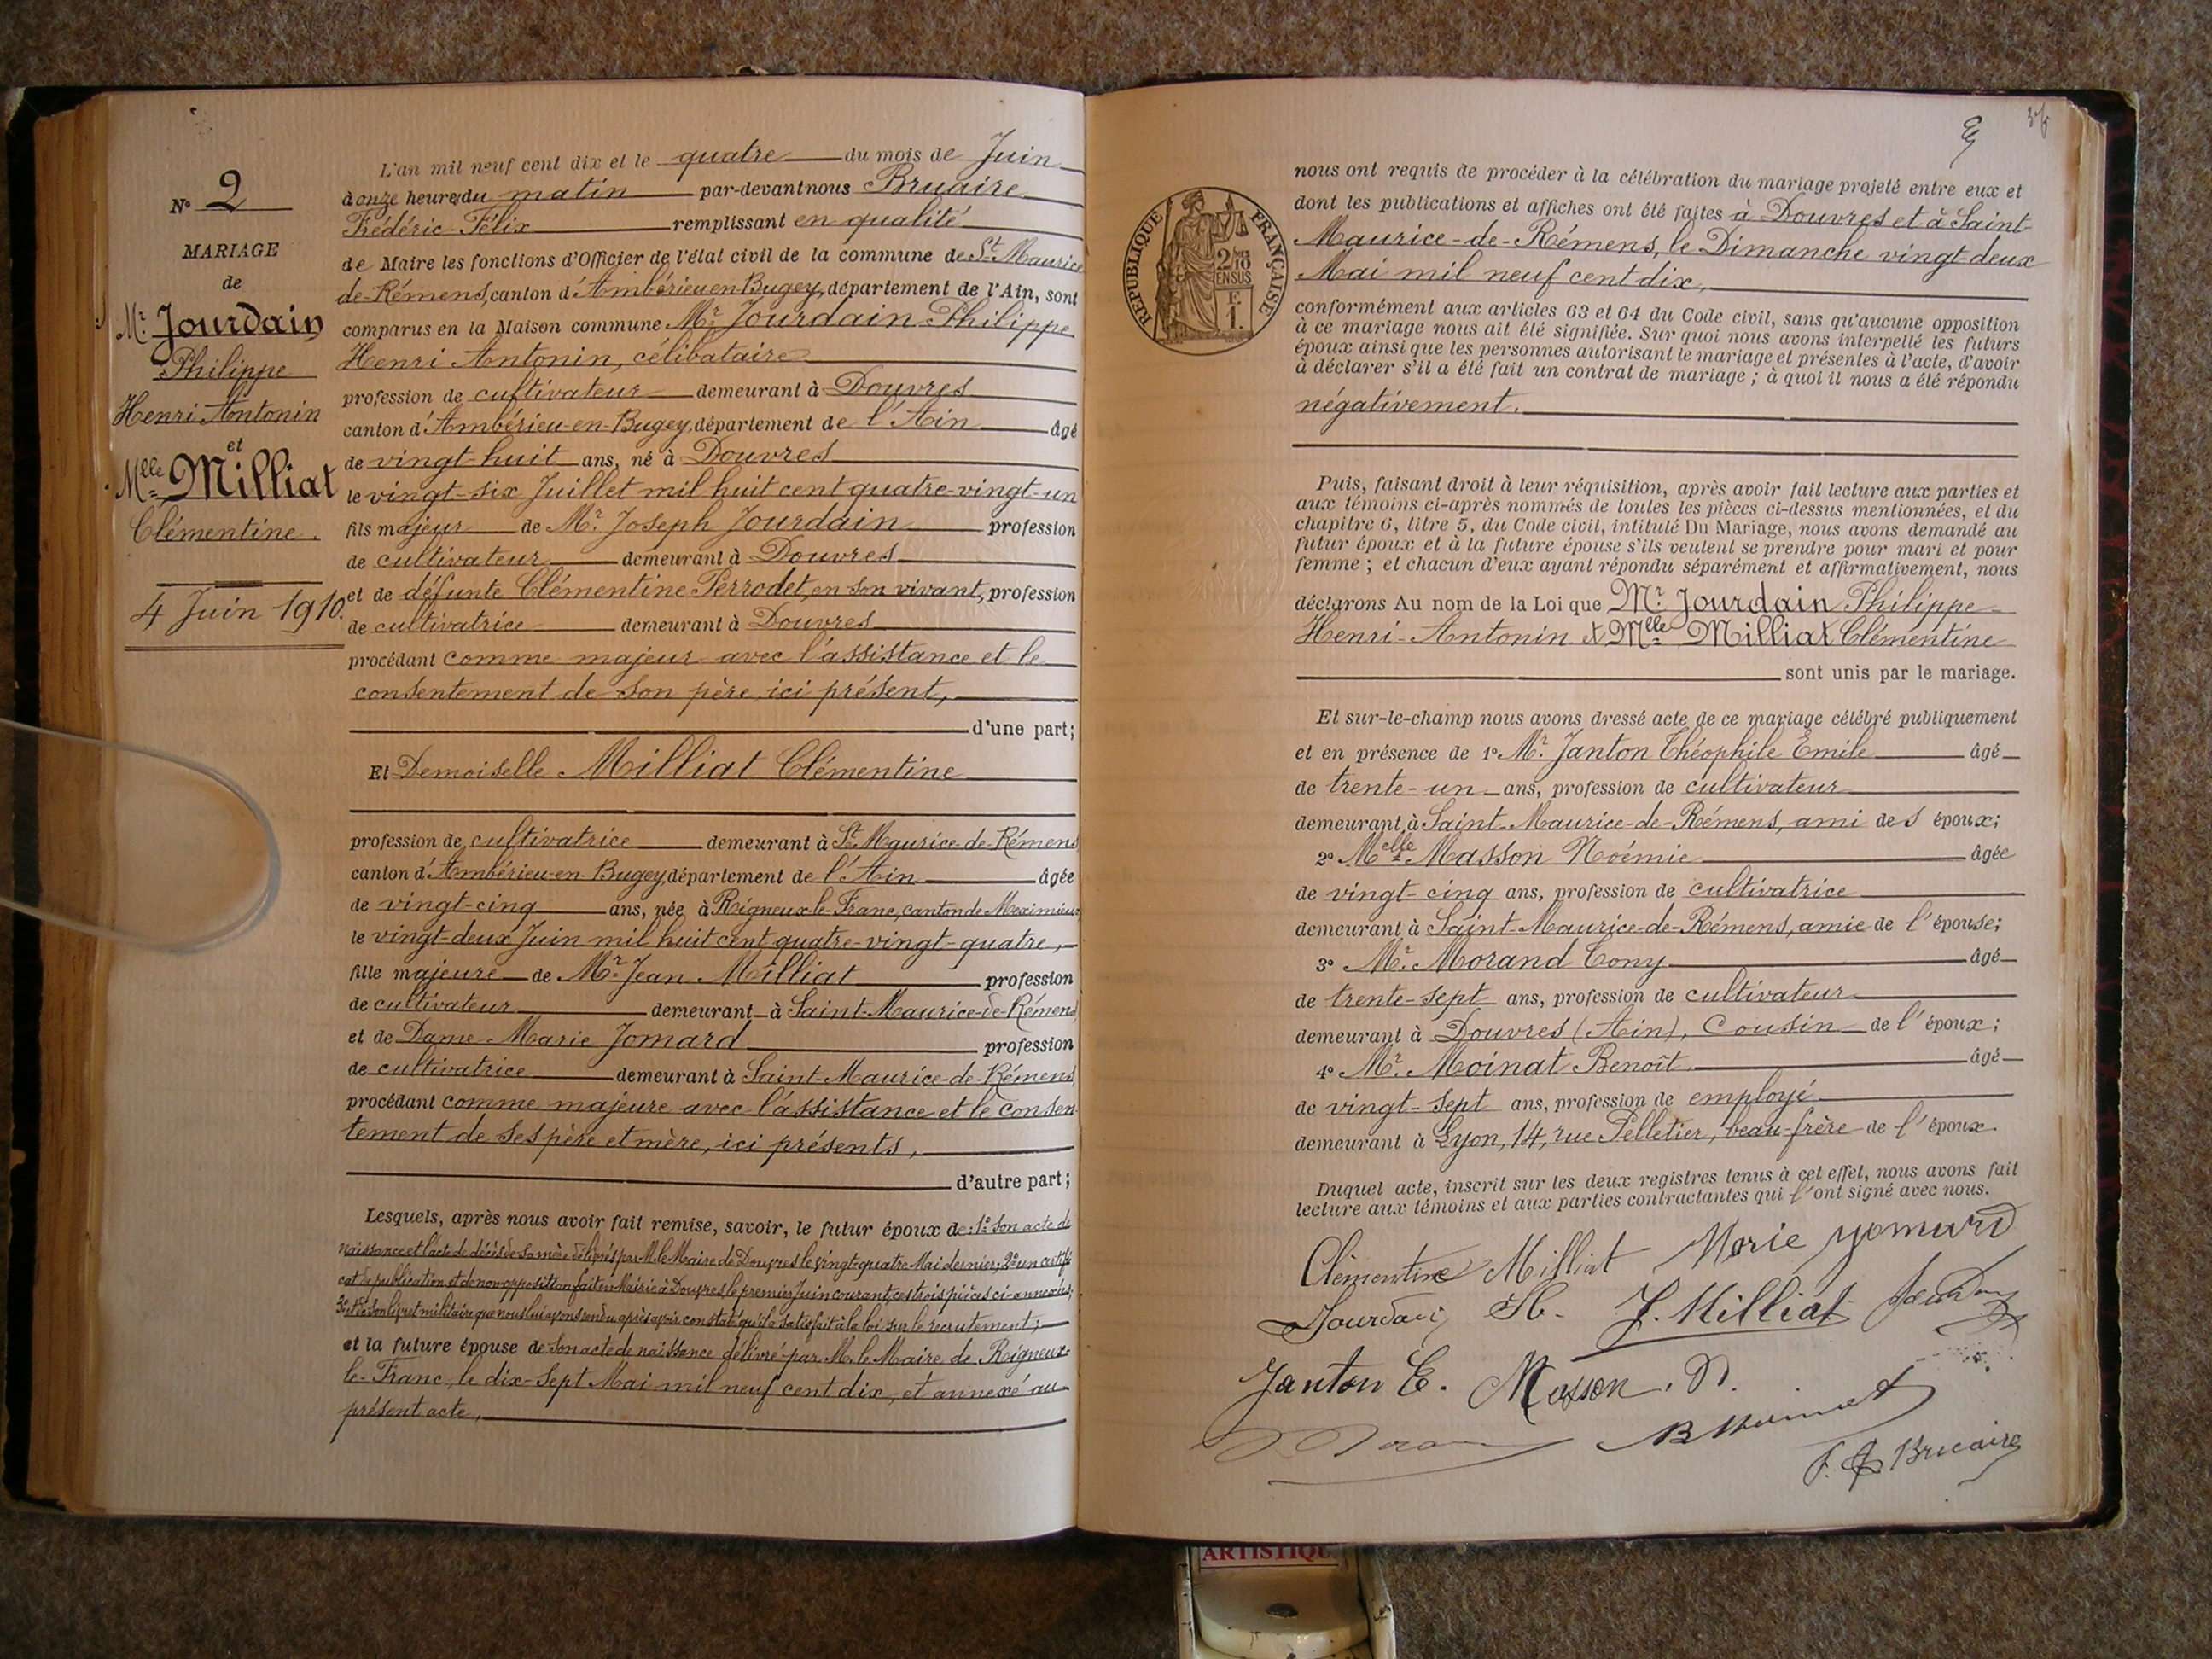 N° 2
MARIAGE
de
Mr. Jourdain
Philippe
Henri Antonin
et
Mlle Milliat
Clémentine.
4 Juin 1910.
L'an mil neuf cent dix et le quatre du mois de Juin
à onze heures du matin par-devant nous Bruaire
Frédéric-Félix remplissant en qualité
de Maire les fonctions d'Officier de l'état civil de la commune de St Maurice
de-Rémens, canton d'Ambérieu-en-Bugey, département de l'Ain, sont
comparus en la Maison commune Mr. Jourdain Philippe
Henri Antonin, célibataire
profession de cultivateur demeurant à Douvres
canton d'Ambérieu-en-Bugey, département de l'Ain âgé
de vingt-huit ans, né à Douvres
le vingt-six Juillet mil huit cent quatre-vingt-un
fils majeur de Mr. Joseph Jourdain profession
de cultivateur demeurant à Douvres
et de défunte Clémentine Perrodet, en son vivant, profession
de cultivatrice demeurant à Douvres
procédant comme majeur avec l'assistance et le
consentement de son père, ici présent,
d'une part;
Et Demoiselle Milliat Clémentine
profession de cultivatrice demeurant à St. Maurice-de-Rémens
canton d'Ambérieu-en-Bugey, département de l'Ain âgée
de vingt-cinq ans, née à Rigneux-le-Franc, canton de Meximieux
le vingt-deux Juin mil huit cent quatre-vingt-quatre,
fille majeure de Mr. Jean Milliat profession
de cultivateur demeurant à Saint-Maurice-de-Rémens
et de Dame Marie Jomard profession
de cultivatrice demeurant à Saint-Maurice-de-Rémens
procédant comme majeure avec l'assistance et le consen
tement de ses père et mère, ici présents,
d'autre part;
Lesquels, après nous avoir fait remise, savoir, le futur époux de: 1° Son acte de
naissance et l'acte de décès de sa mère délivrés par M. le Maire de Douvres le vingt-quatre Mai dernier; 2° un certifi
cat de publication et de non opposition fait en Mairie à Douvres le premier Juin courant, ces trois pièces ci-annexées;
3° et de son livret militaire que nous lui avons rendu après avoir constaté qu'il a satisfait à la loi sur le recrutement;
et la future épouse de son acte de naissance délivré par M. le Maire de Rigneux-
le-Franc, le dix-sept Mai mil neuf cent dix, et annexé au
présent acte,
RÉPUBLIQUE FRANÇAISE
nous ont requis de procéder à la célébration du mariage projeté entre eux et
dont les publications et affiches ont été faites à Douvres et à Saint-
Maurice-de-Rémens, le Dimanche vingt-deux
Mai mil neuf cent dix,
conformément aux articles 63 et 64 du Code civil, sans qu'aucune opposition
à ce mariage nous ait été signifiée. Sur quoi nous avons interpellé les futurs
époux ainsi que les personnes autorisant le mariage et présentes à l'acte, d'avoir
à déclarer s'il a été fait un contrat de mariage; à quoi il nous a été répondu
négativement.
Puis, faisant droit à leur réquisition, après avoir fait lecture aux parties et
aux témoins ci-après nommés de toutes les pièces ci-dessus mentionnées, et du
chapitre 6, titre 5, du Code civil, intitulé Du Mariage, nous avons demandé au
futur époux et à la future épouse s'ils veulent se prendre pour mari et pour
femme; et chacun d'eux ayant répondu séparément et affirmativement, nous
déclarons Au nom de la Loi que Mr. Jourdain Philippe
Henri-Antonin et Mlle Milliat Clémentine
sont unis par le mariage.
Et sur-le-champ nous avons dressé acte de ce mariage célébré publiquement
et en présence de 1° Mr. Janton Théophile Emile âgé
de trente-un ans, profession de cultivateur
demeurant à Saint-Maurice-de-Rémens, ami des époux;
2° Melle Masson Noémie âgée
de vingt-cinq ans, profession de cultivatrice
demeurant à Saint-Maurice-de-Rémens, amie de l'épouse;
3° Mr. Morand Tony âgé
de trente-sept ans, profession de cultivateur
demeurant à Douvres (Ain), Cousin de l'époux;
4° Mr. Moinat Benoît âgé
de vingt-sept ans, profession de employé
demeurant à Lyon, 14, rue Pelletier, beau-frère de l'époux.
Duquel acte, inscrit sur les deux registres tenus à cet effet, nous avons fait
lecture aux témoins et aux parties contractantes qui l'ont signé avec nous.
Clémentine Milliat Marie Jomard
Jourdain H. J. Milliat
Janton E. Masson. N.
B Moinat
F. F. Bruaire
ARTISTIQU